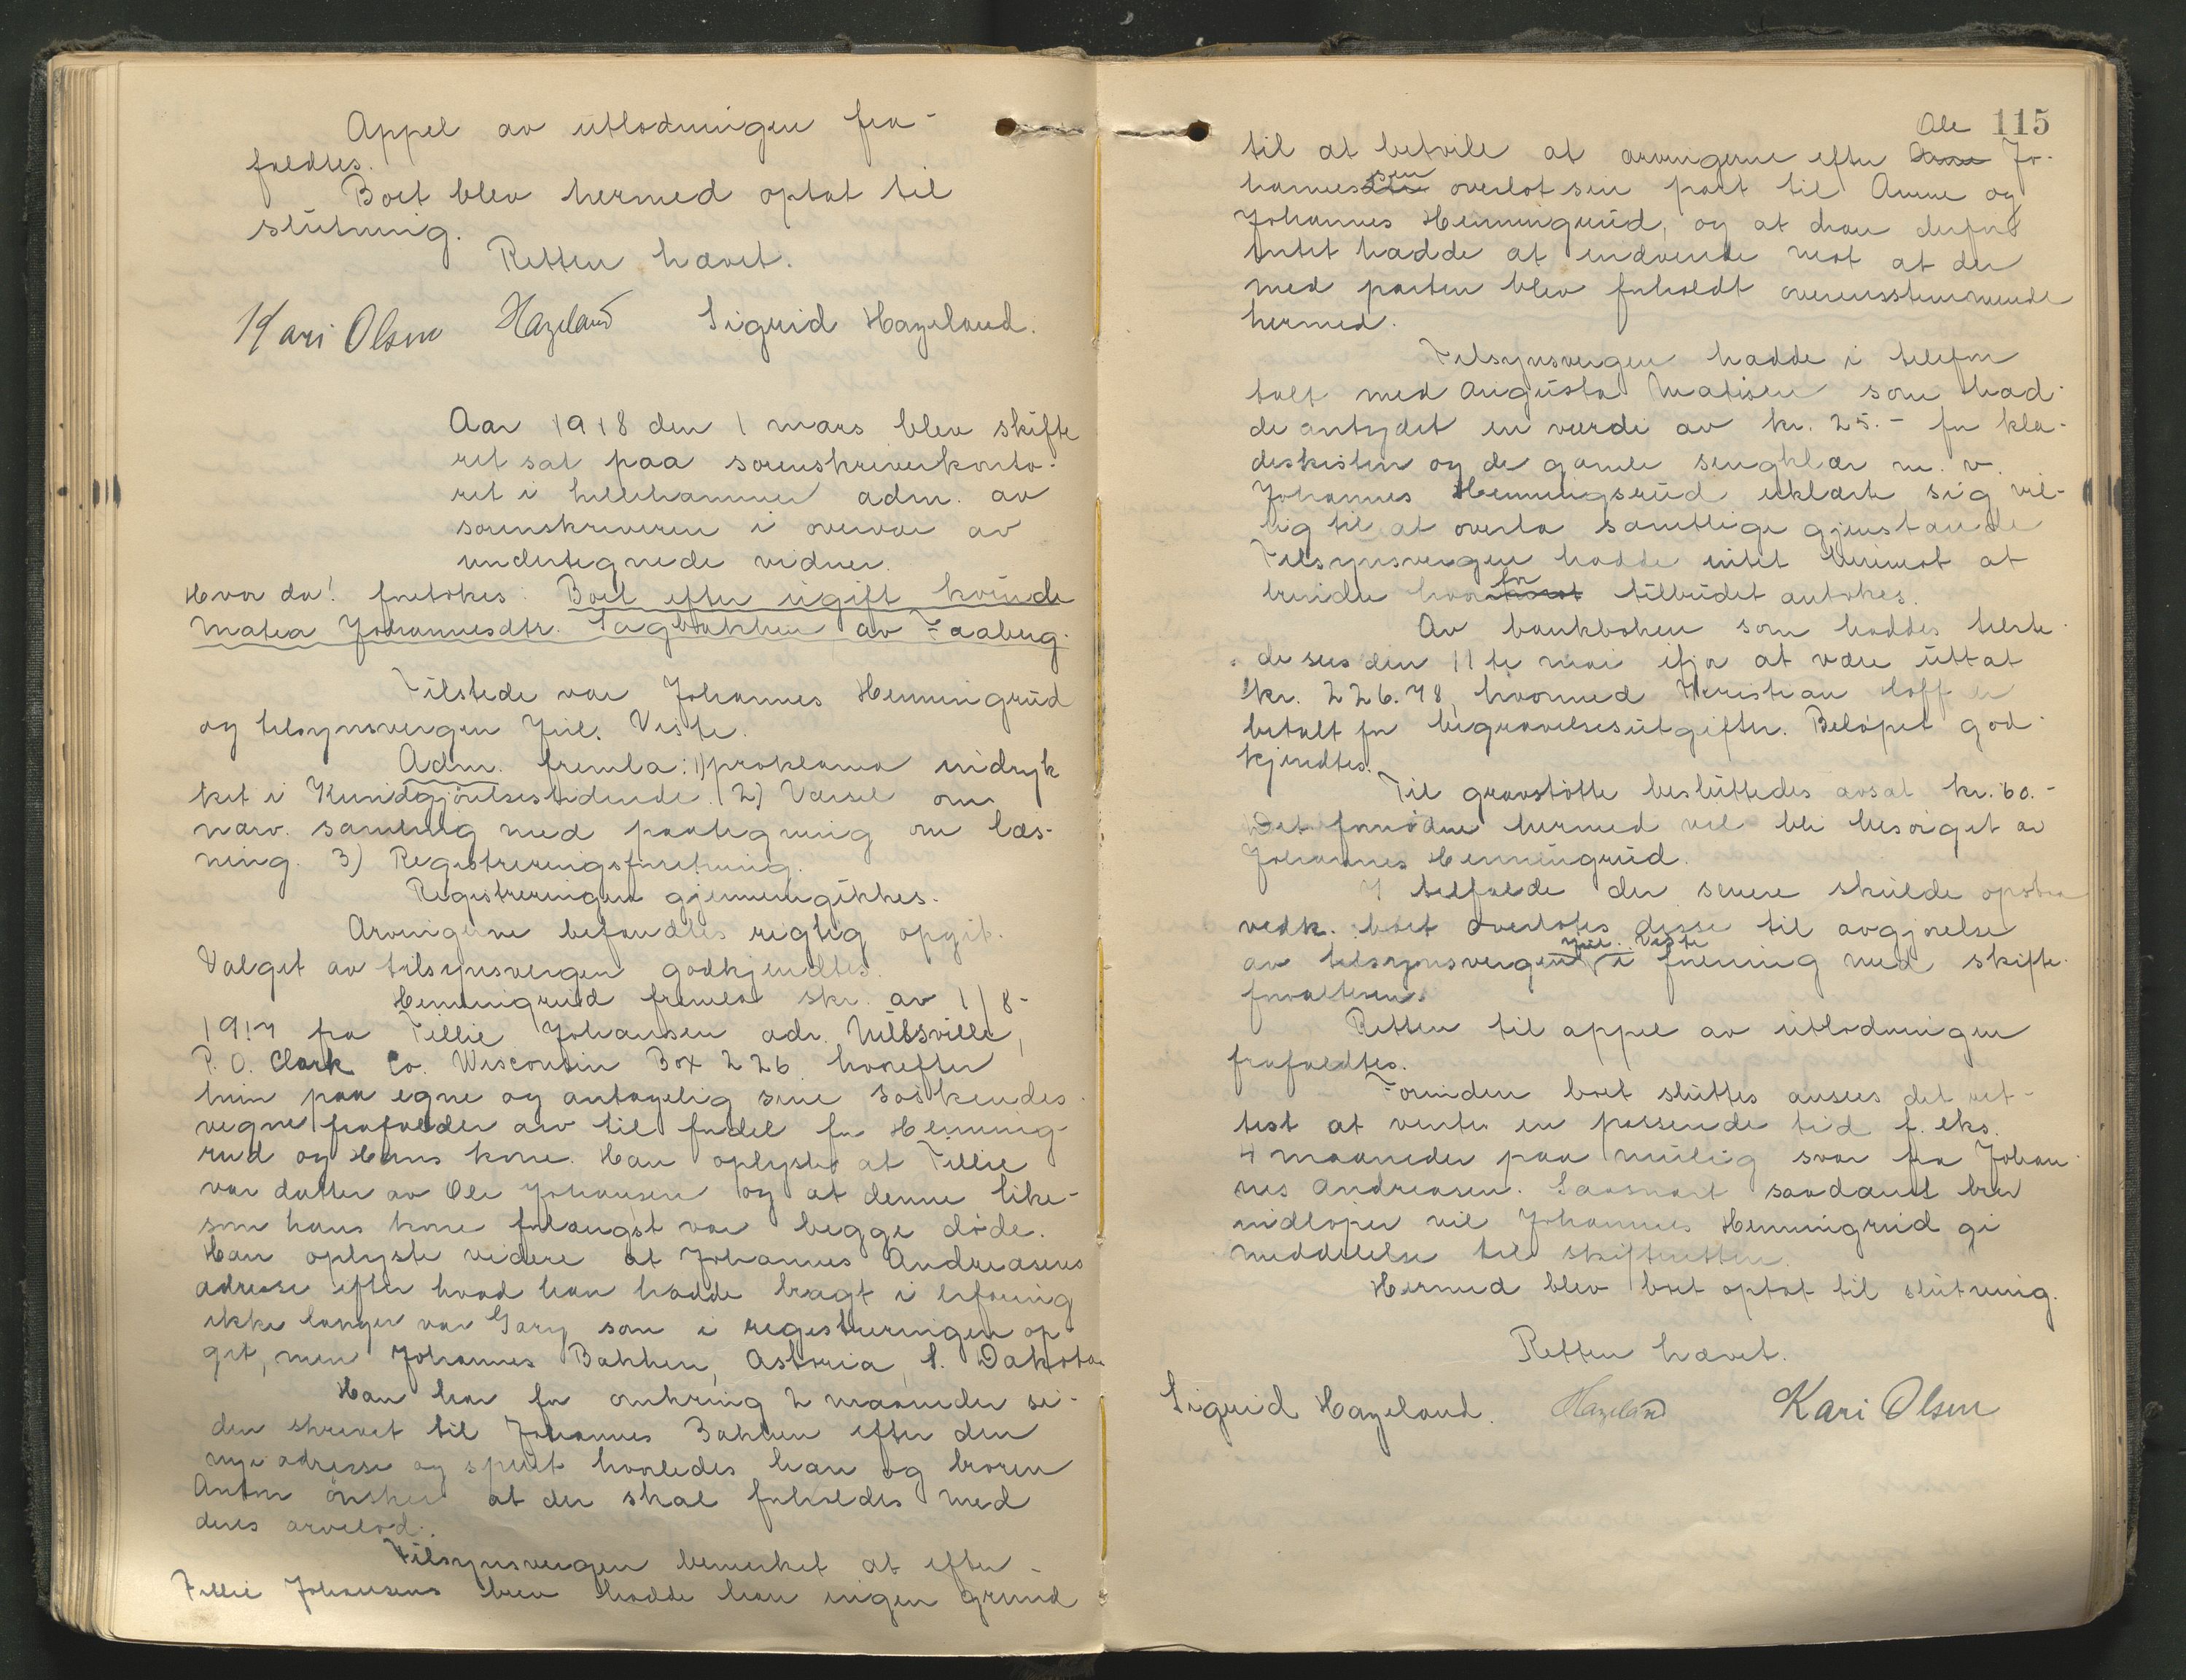 Appel av utlodningen fra-
faldtes.
Boet blev hermed optat til
slutning.
Retten hævet.
Kari Olsen Hazeland Sigrid Hazeland.
Aar 1918 den 1 mars blev skifte
ret sat paa sorenskriverkonto-
ret i Lillehammer adm. av
sorenskriveren i overvær av
undertegnede vidner.
Hvor da! foretokes: Boet efter ugift kvinde
Matea Johannesdtr. Sagbakken av Faaberg.
Tilstede var Johannes Henningrud
og tilsynsvergen Juul. Viste.
Adm. fremla: 1) proklama indryk
ket i Kundgjørelsestidende. 2) Varsel om
nærv. samling med paategning om læs-
ning. 3) Registreringsforretning.
Registreringen gjennemgikkes.
Arvingerne befandtes rigtig opgit.
Valget av tilsynsvergen godkjendtes.
Henningrud fremla skr. av 1/8-
1917 fra Tillie Johansen adr.
P. O. Clark Co. Wisconsin Box 226. hvorefter
hun paa egne og antagelig sine søskendes
vegne frafalder arv til fordel for Henning-
rud og Hans kone. Han oplyste at Tillie
var datter av Ole Johansen og at denne like-
som hans kone forlængst var begge døde.
Han oplyste videre at Johannes Andreasens
adresse efter hvad han hadde bragt i erfaring
ikke længer var Gary som i registreringen op-
git, men Johannes Bakken, Astoria, S. Dakota
Han har for omkring 2 maaneder si-
den skrevet til Johannes Bakken efter den
nye adresse og spurt hvorledes han og broren
Anton ønsker at der skal forholdes med
deres arvelod.
Tilsynsvergen bemerket at efter
Tillie Johansens brev hadde han ingen grund
115
Ole
til at betvile at arvingerne efter Jo-
sen
hannes overlot sin part til Anne og
Johannes Henningrud, og at han derfor
intet hadde at indvende mot at der
med parten blev forholdt overensstemmende
hermed.
Tilsynsvergen hadde i telefon
talt med Augusta Matisen som had-
de antydet en værdi av kr. 25.- for klæ-
deskisten og de gamle sengklær m. v.
Johannes Henningsrud erklærte sig vil-
lig til at overta samtlige gjenstande
Tilsynsvergen hadde intet herimot at
for
erindre hvor tilbudet antokes.
Av bankboken som hadde tilste
de sees den 11te mai ifjor at være uttat
kr. 226.78, hvormed Kristian Hoff er
betalt for begravelsesutgifter. Beløpet god-
kjendtes.
Til gravstøtte besluttedes avsat kr. 60.-
Det fornødne hermed vil bli besørget av
Johannes Henningrud.
I tilfælde der senere skulde opstaa
vedk. boet overlates disse til avgjørelse
Juul. Viste
av tilsynsvergen i forening med skifte-
forvalteren.
Retten til appel av utlodningen
frafaldtes.
Forinden boet sluttes ansees det ret-
test at vente en passende tid f. eks.
4 maaneder paa mulig svar fra Johan
nes Andreasen. Saasnart saadant brev
indløper vil Johannes Henningrud gi
meddelelse til skifteretten.
Hermed blev boet optat til slutning.
Retten hævet.
Sigrid Hazeland. Hazeland Kari Olsen